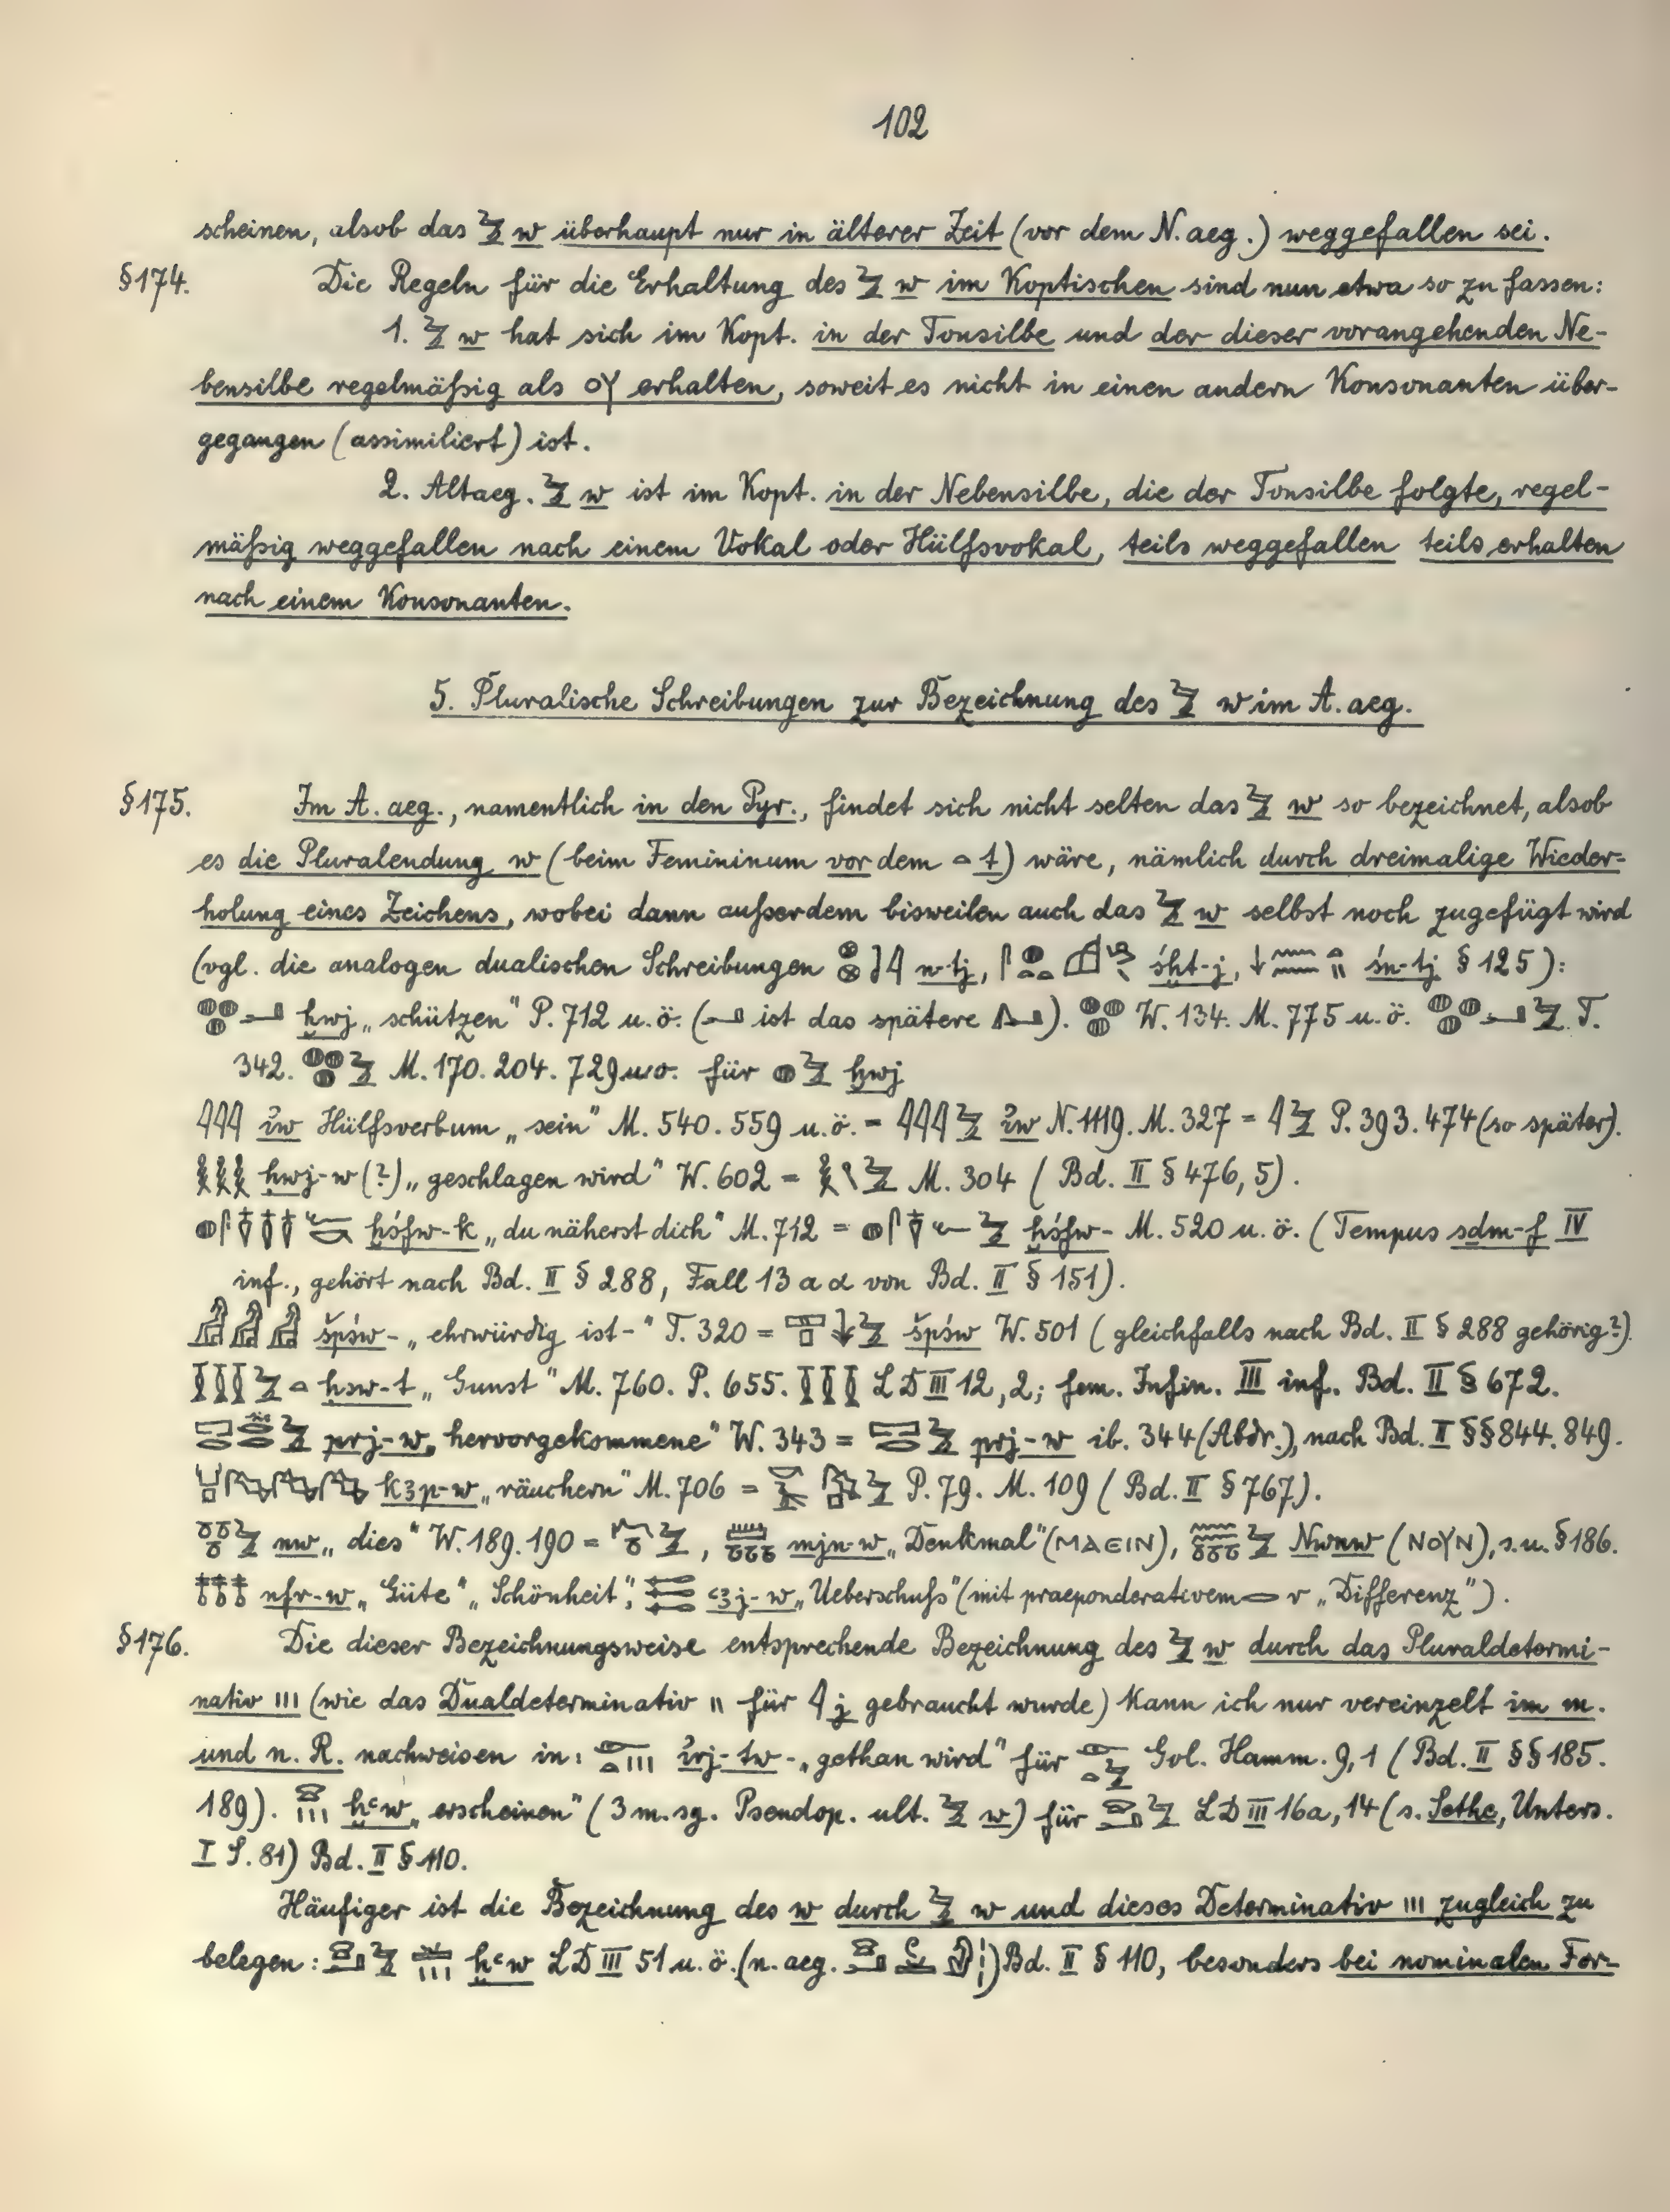 102
scheinen, alsob das 𓅱 w überhaupt nur in älterer Zeit (vor dem N. aeg.) weggefallen sei.
§174. Die Regeln für die Erhaltung des 𓅱 w im Koptischen sind nun etwa so zu fassen:
1. 𓅱 w hat sich im Kopt. in der Tonsilbe und der dieser vorangehenden Ne-
bensilbe regelmäßig als ⲟⲩ erhalten, soweit es nicht in einen andern Konsonanten über-
gegangen (assimiliert) ist.
2. Altaeg. 𓅱 w ist im Kopt. in der Nebensilbe, die der Tonsilbe folgte, regel-
mäßig weggefallen nach einem Vokal oder Hülfsvokal, teils weggefallen teils erhalten
nach einem Konsonanten.
5. Pluralische Schreibungen zur Bezeichnung des 𓅱 w im A. aeg.
§175. Im A. aeg., namentlich in den Pyr., findet sich nicht selten das 𓅱 w so bezeichnet, alsob
es die Pluralendung w (beim Femininum vor dem 𓏏 t) wäre, nämlich durch dreimalige Wieder-
holung eines Zeichens, wobei dann außerdem bisweilen auch das 𓅱 w selbst noch zugefügt wird
(vgl. die analogen dualischen Schreibungen n-tj, śḫt-j, śn-tj §125):
ḫwj „schützen" P. 712 u. ö. (𓂝 ist das spätere 𓂞). 𓐍𓐍𓐍 W. 134. M. 775 u. ö. 𓐍𓐍𓐍𓂝𓅱 T.
342. 𓐍𓐍𓐍𓅱 M. 170. 204. 729 u. ö. für 𓐍𓅱 ḫwj
𓇋𓇋𓇋 ı͗w Hülfsverbum „sein" M. 540. 559 u. ö. = 𓇋𓇋𓇋𓅱 ı͗w N. 1119. M. 327 = 𓇋𓅱 P. 393. 474 (so später).
ḥwj-w (?) „geschlagen wird" W. 602 = M. 304 (Bd. II §476, 5).
ḫśfw-k „du näherst dich" M. 712 = ḫśfw- M. 520 u. ö. (Tempus sḏm-f IV
inf., gehört nach Bd. II §288, Fall 13 a α von Bd. II §151).
𓀻𓀻𓀻 špśw- „ehrwürdig ist-" T. 320 = 𓈙𓊪𓋴𓅱 špśw W. 501 (gleichfalls nach Bd. II §288 gehörig?).
𓎛𓎛𓎛𓅱𓏏 ḥsw-t „Gunst" M. 760. P. 655. LD III 12, 2; fem. Infin. III inf. Bd. II §672.
prj-w „hervorgekommene" W. 343 = 𓉐𓂋𓅱 prj-w ib. 344 (Abdr.), nach Bd. II §§844. 849.
kꜣp-w „räuchern" M. 706 = P. 79. M. 109 (Bd. II §767).
𓏌𓏌𓏌𓅱 nw „dies" W. 189. 190 = 𓈖𓏌𓅱, mjn-w „Denkmal" (ⲙⲁⲉⲓⲛ), Nwnw (ⲛⲟⲩⲛ), s. u. §186.
𓄤𓄤𓄤 nfr-w „Güte" „Schönheit", ꜥꜣj-w „Ueberschuß" (mit praeponderativem 𓂋 r „Differenz").
§176. Die dieser Bezeichnungsweise entsprechende Bezeichnung des 𓅱 w durch das Pluraldetermi-
nativ III (wie das Dualdeterminativ II für 𓇋 j gebraucht wurde) kann ich nur vereinzelt im m.
und n. R. nachweisen in: 𓁹𓂋𓏏𓏥 ı͗rj-tw- „gethan wird" für 𓁹𓂋𓏏𓅱 Gol. Hamm. 9, 1 (Bd. II §§185.
189). 𓈍𓏥 ḫꜥw „erscheinen" (3 m. sg. Pseudop. ult. 𓅱 w) für 𓈍𓂝𓅱 LD III 16a, 14 (s. Sethe, Unters.
I S. 81) Bd. II §110.
Häufiger ist die Bezeichnung des w durch 𓅱 w und dieses Determinativ III zugleich zu
belegen: 𓈍𓂝𓅱𓏥 ḫꜥw LD III 51 u. ö. (n. aeg.) Bd. II §110, besonders bei nominalen For-